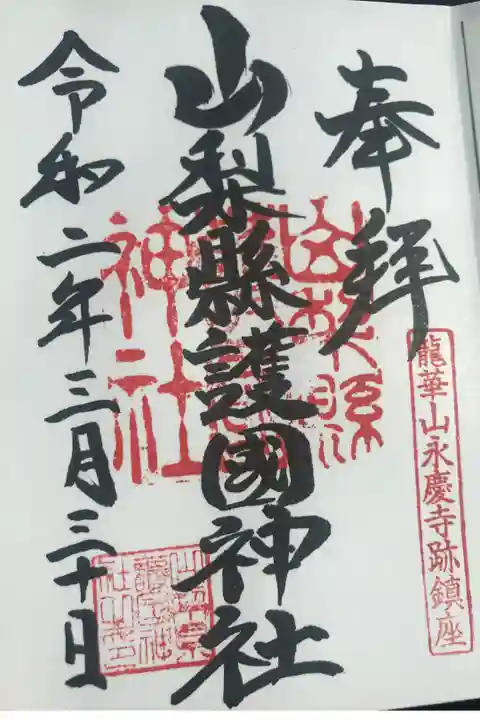 奉拜
龍華山永慶寺跡鎮座
山梨縣護國神社
山梨縣護國神社
令和二年三月三十日